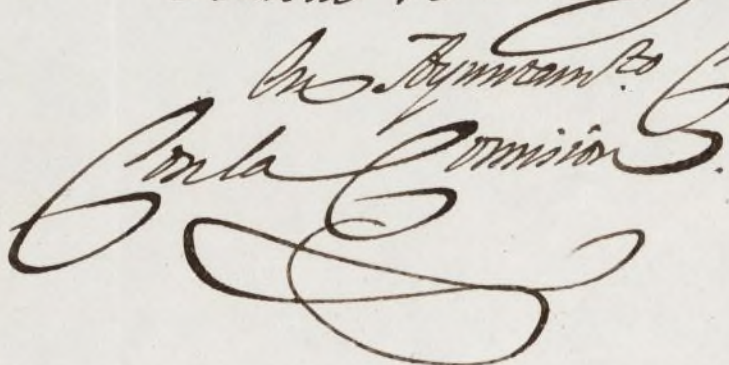 En Ayuntam.to
Con la Comisión.